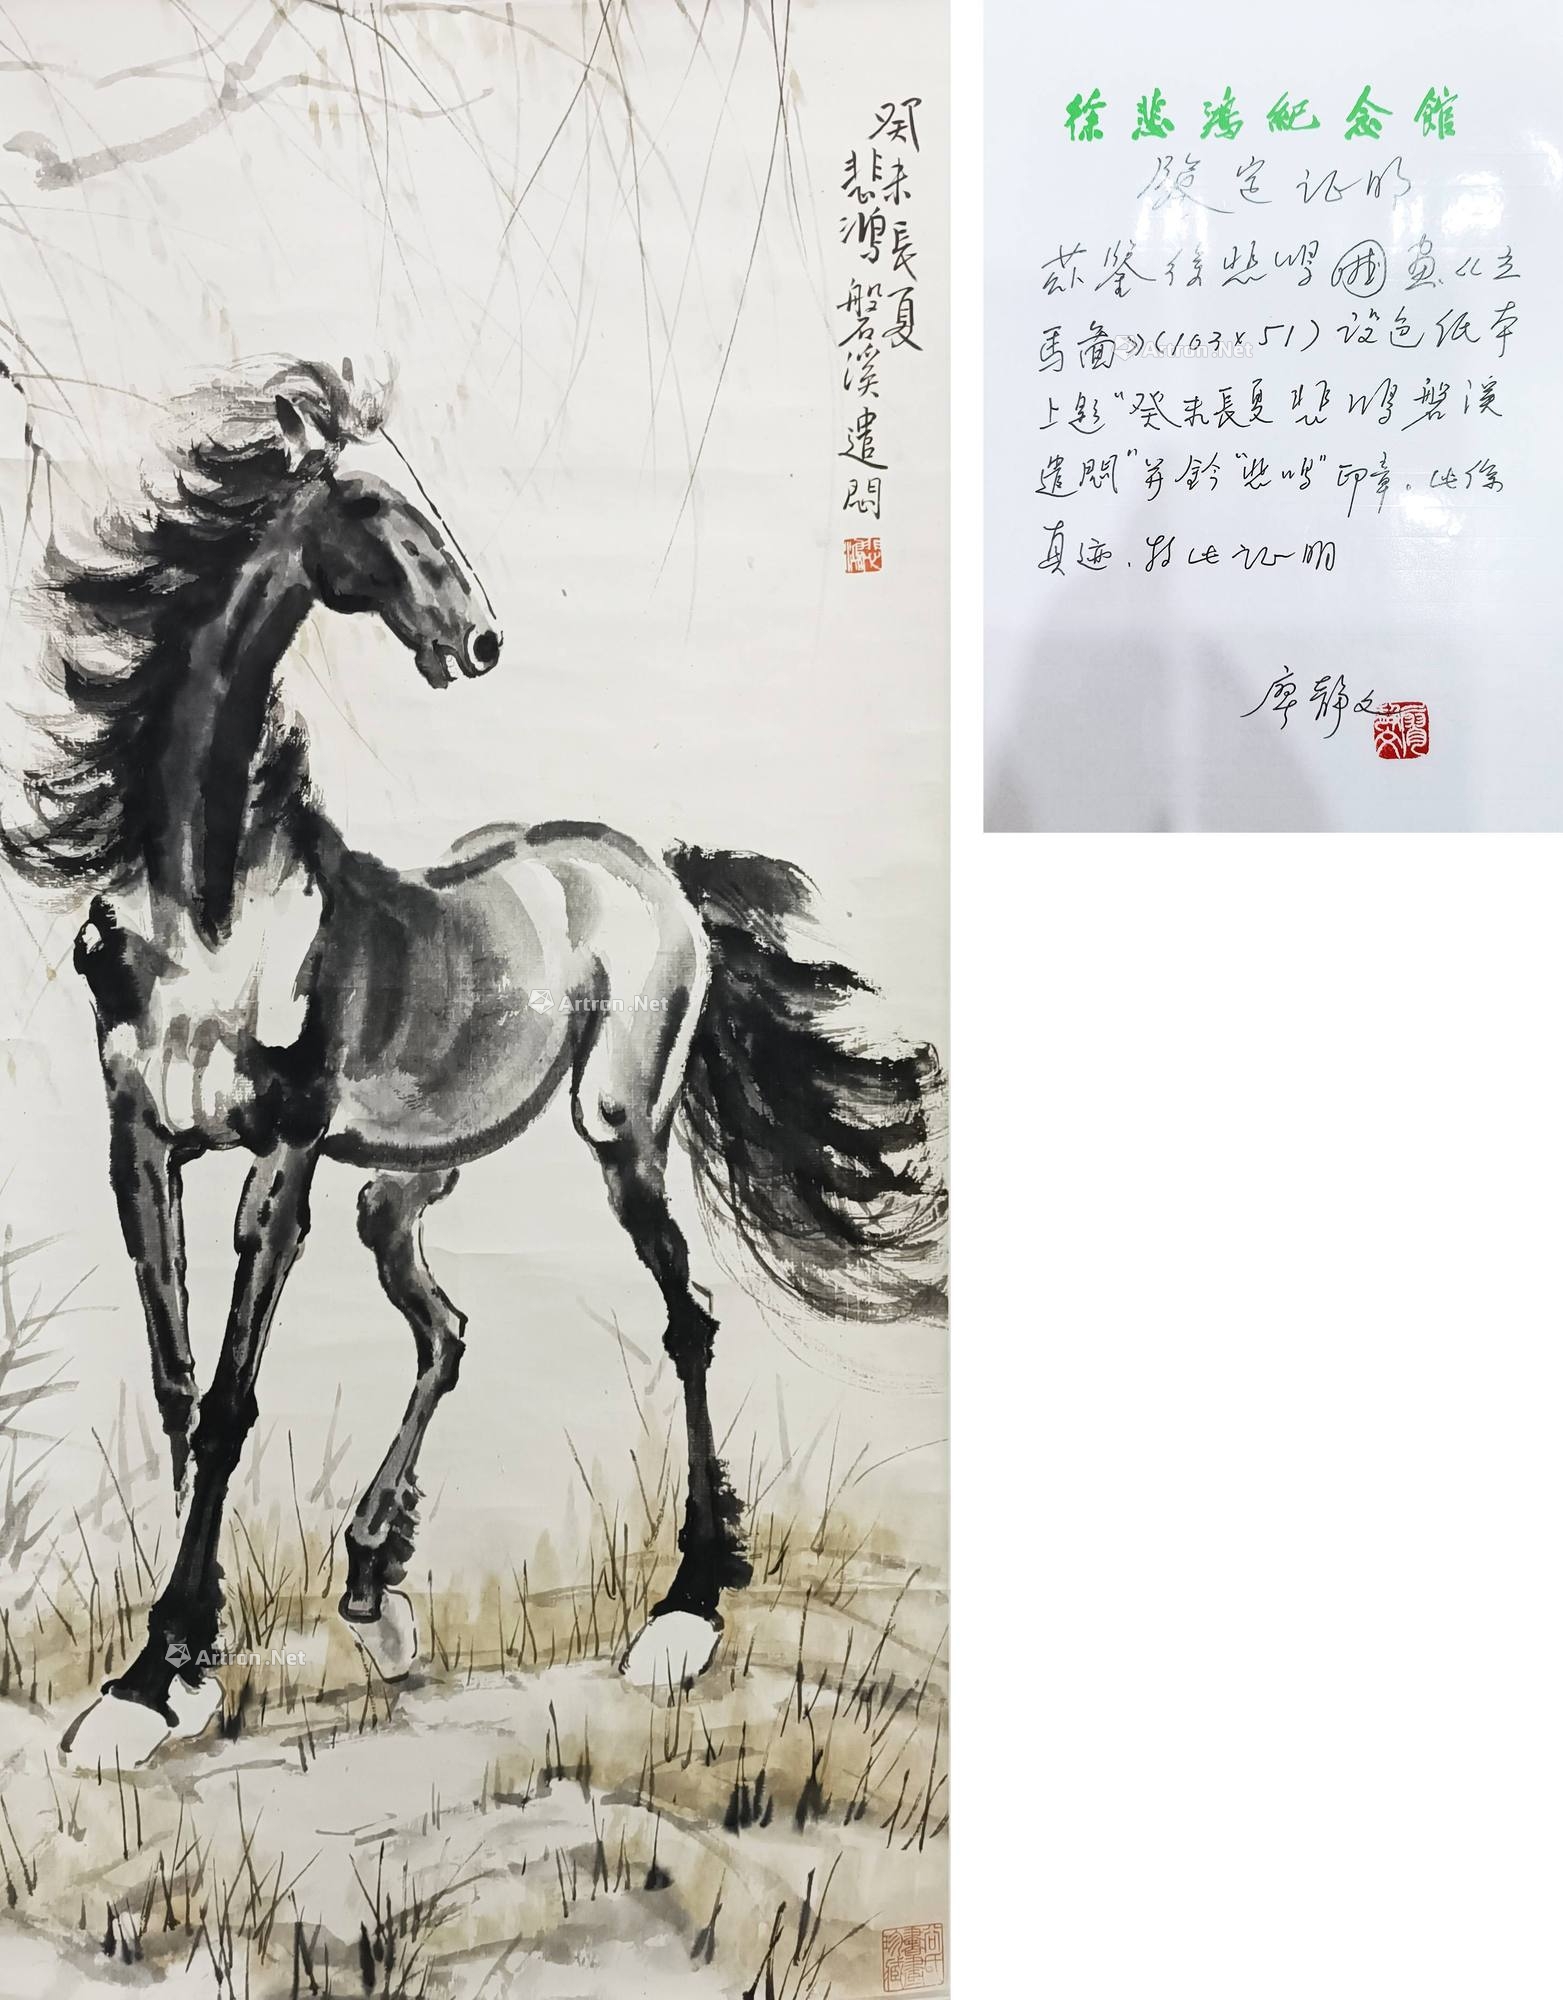 癸未長夏
悲鴻磐溪遣悶
悲鴻
徐悲鴻紀念館
鉴定证明
兹鉴徐悲鸿国画《立
馬圖》(103×51)设色纸本
上题"癸未長夏悲鸿磐溪
遣悶"并钤"悲鸿"印章。此係
真迹.特此证明
廖静文
Artron.Net
Artron.Net
Artron.Net